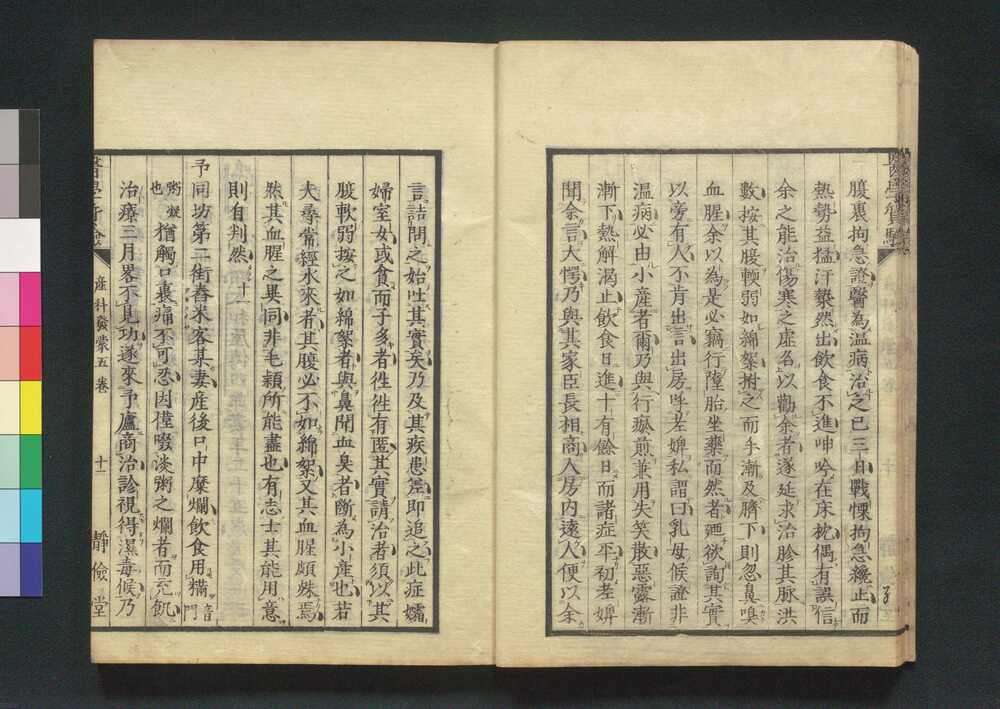 腹裏拘急證醫為温病治之已三日戰慄拘急纔止而
熱勢益猛汗漐然出飲食不進呻吟在床枕偶有誤信
余之能治傷寒之虚名以勸余者遂延求治胗其脉洪
數按其腹輭弱如綿絮拊之而手漸及臍下則忽鼻嗅
血腥余以為是必竊行墮胎坐藥而然者廼欲詢其實
以旁有人不肯出言出房呼老婢私謂曰乳母候證非
温病必由小産者爾乃與行瘀煎兼用失笑散惡露漸
漸下熱解渴止飲食日進十有餘日而諸症平初老婢
聞余言大愕乃與其家臣長相商人房内遠人便以余
言詰問之始吐其實矣乃及其疾患差即追之此症孀
婦室女或貧而子多者徃徃有匿其實請治者須以其
腹軟弱按之如綿絮者與鼻聞血臭者斷為小產也若
夫尋常經水來者其腹必不如綿絮又其血腥頗殊焉
然其血腥之異同非毛穎所能盡也有志士其能用意
則自判然 十一
予同坊第二街舂米客某妻産後口中糜爛飲食用䊟 音門
粥凝也 猶觸口裏痛不可忍因僅啜淡粥之爛者而充飢
治療三月畧不見功遂來予廬商治診視得濕毒候乃
産科發蒙五卷
十一
靜儉堂